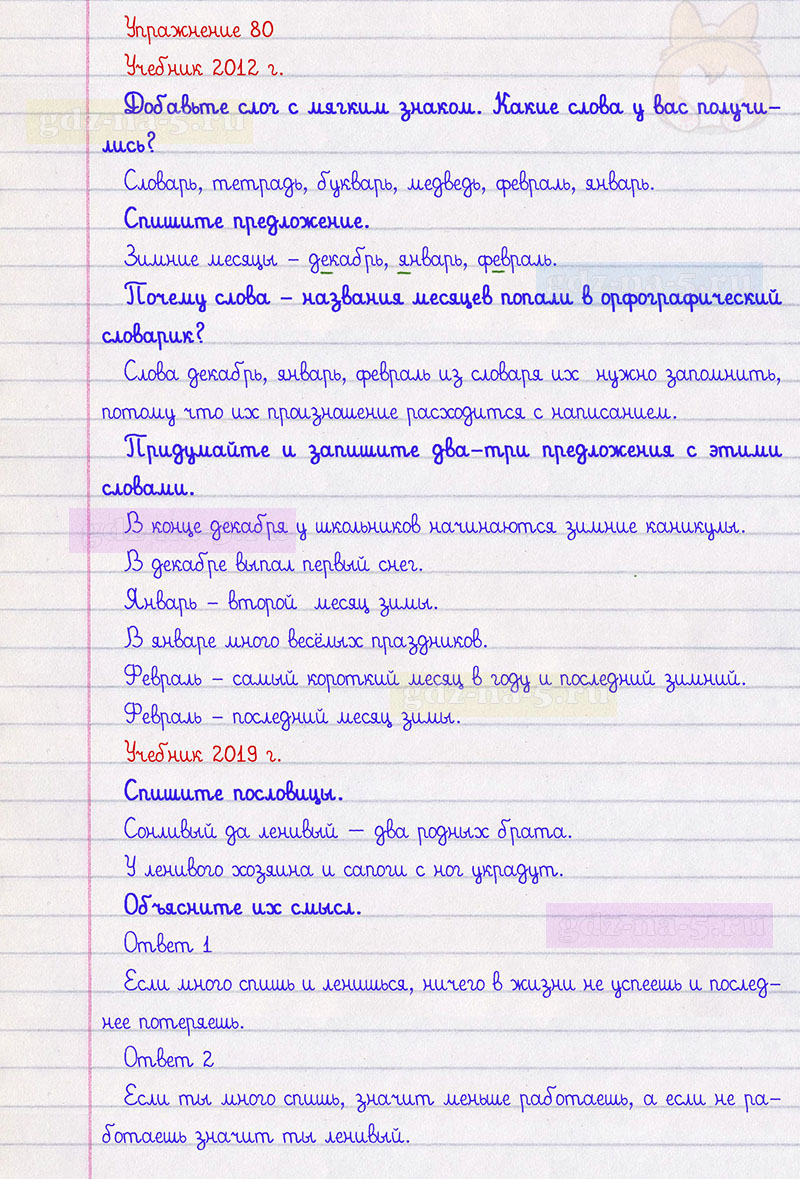 Упражнение 80
Учебник 2012 г.
Добавьте слог с мягким знаком. Какие слова у вас получи-
лись?
gdz-na-5.ru
Словарь, тетрадь, букварь, медведь, февраль, январь.
Спишите предложение.
Зимние месяцы – декабрь, январь, февраль.
gdz-na-5.ru
Почему слова – названия месяцев попали в орфографический
словарик?
Слова декабрь, январь, февраль из словаря их нужно запомнить,
потому что их произношение расходится с написанием.
Придумайте и запишите два-три предложения с этими
словами.
В конце декабря у школьников начинаются зимние каникулы.
gdz-na-5.ru
В декабре выпал первый снег.
Январь – второй месяц зимы.
В январе много весёлых праздников.
Февраль – самый короткий месяц в году и последний зимний.
gdz-na-5.ru
Февраль – последний месяц зимы.
Учебник 2019 г.
Спишите пословицы.
Сонливый да ленивый — два родных брата.
У ленивого хозяина и сапоги с ног украдут.
Объясните их смысл.
gdz-na-5.ru
Ответ 1
Если много спишь и ленишься, ничего в жизни не успеешь и послед-
нее потеряешь.
Ответ 2
Если ты много спишь, значит меньше работаешь, а если не ра-
ботаешь значит ты ленивый.